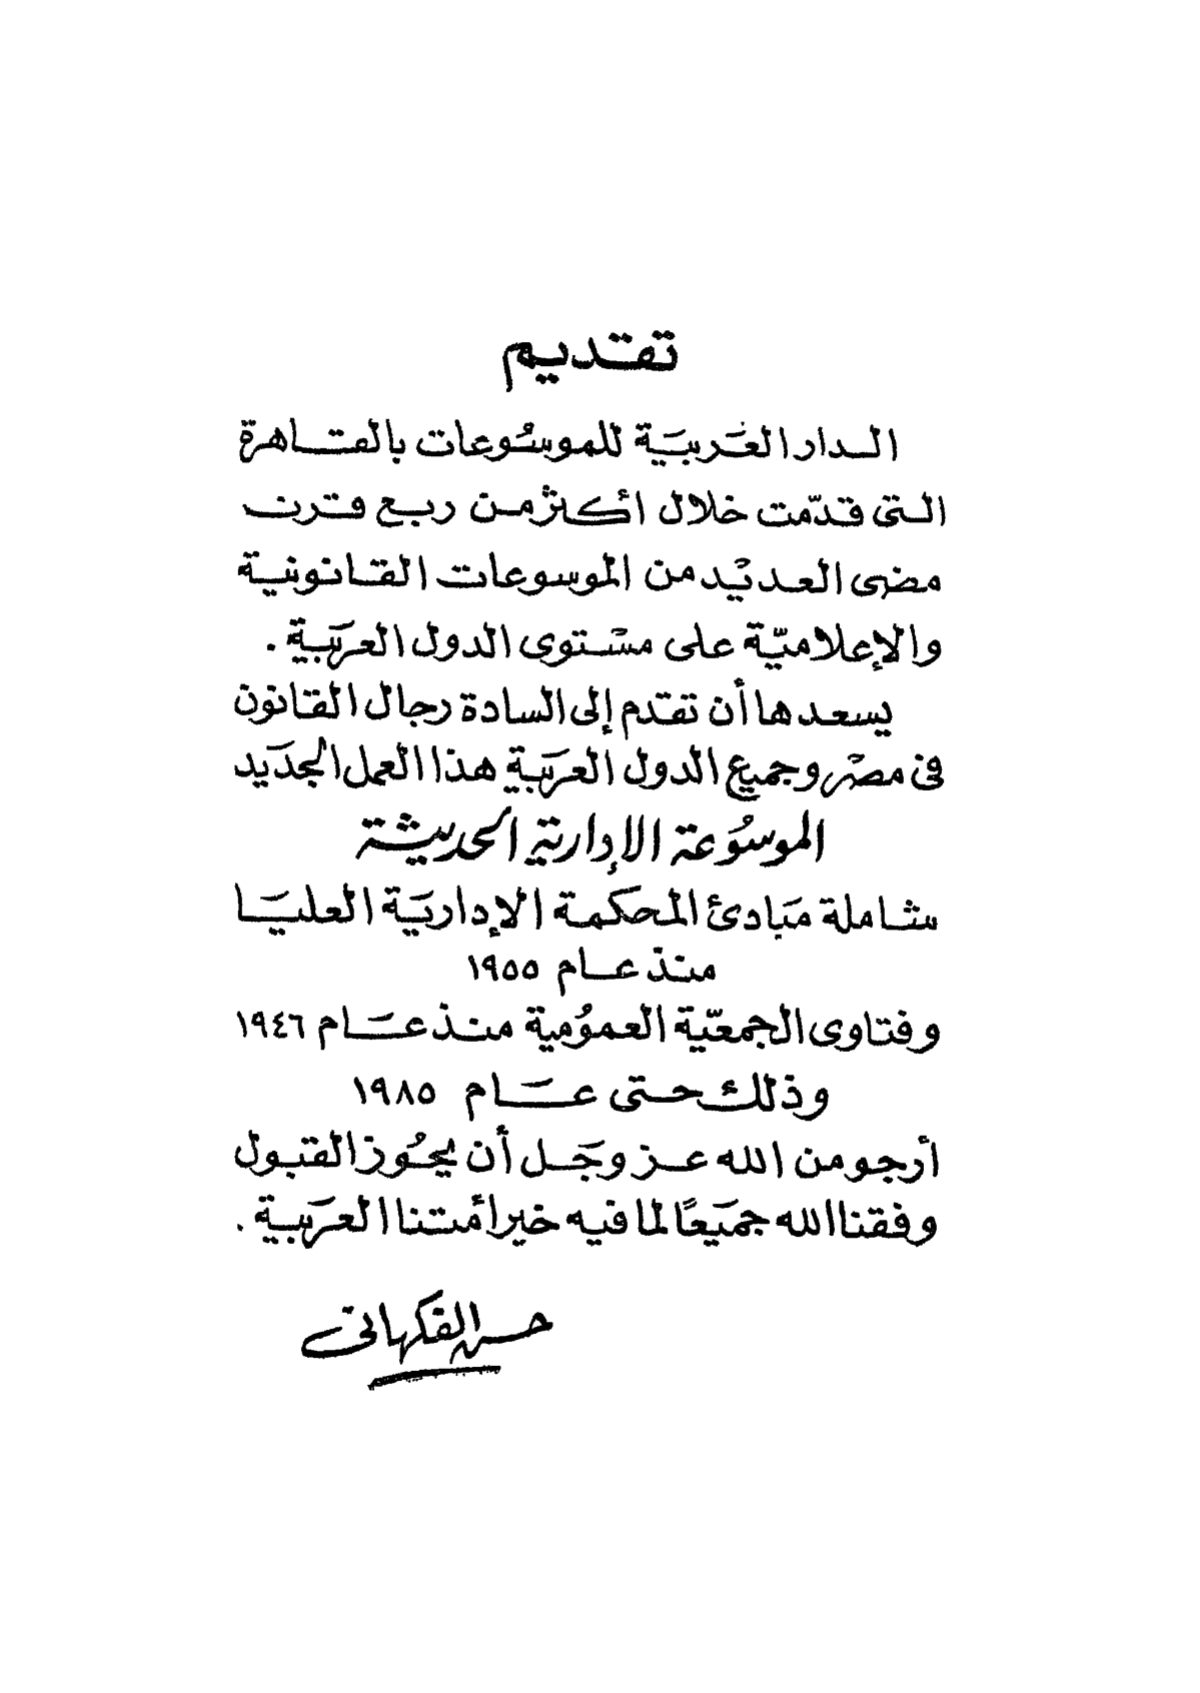 تقديم
الدار العَربيَة للموسُوعات بالقاهرة
التى قدّمت خلال أكثر من ربع قرن
مضى العديْد من الموسوعات القانونية
والإعلاميّة على مسْتوى الدول العربَية .
يسعدها أن تقدم إلى السادة رجال القانون
فى مصْر وجميع الدول العربَية هذا العمل الجدَيد
الموسُوعة الإدارية الحديثة
شاملة مَبادئ المحكمة الإداريَة العليَا
منذ عام ١٩٥٥
وفتاوى الجمعّية العمومُية منذ عَام ١٩٤٦
وذلك حتى عَام ١٩٨٥
أرجو من الله عز وجَل أن يحُوز القبول
وفقنا الله جميَعًا لما فيه خير أمتنا العرَبية .
حسن الفكهانى